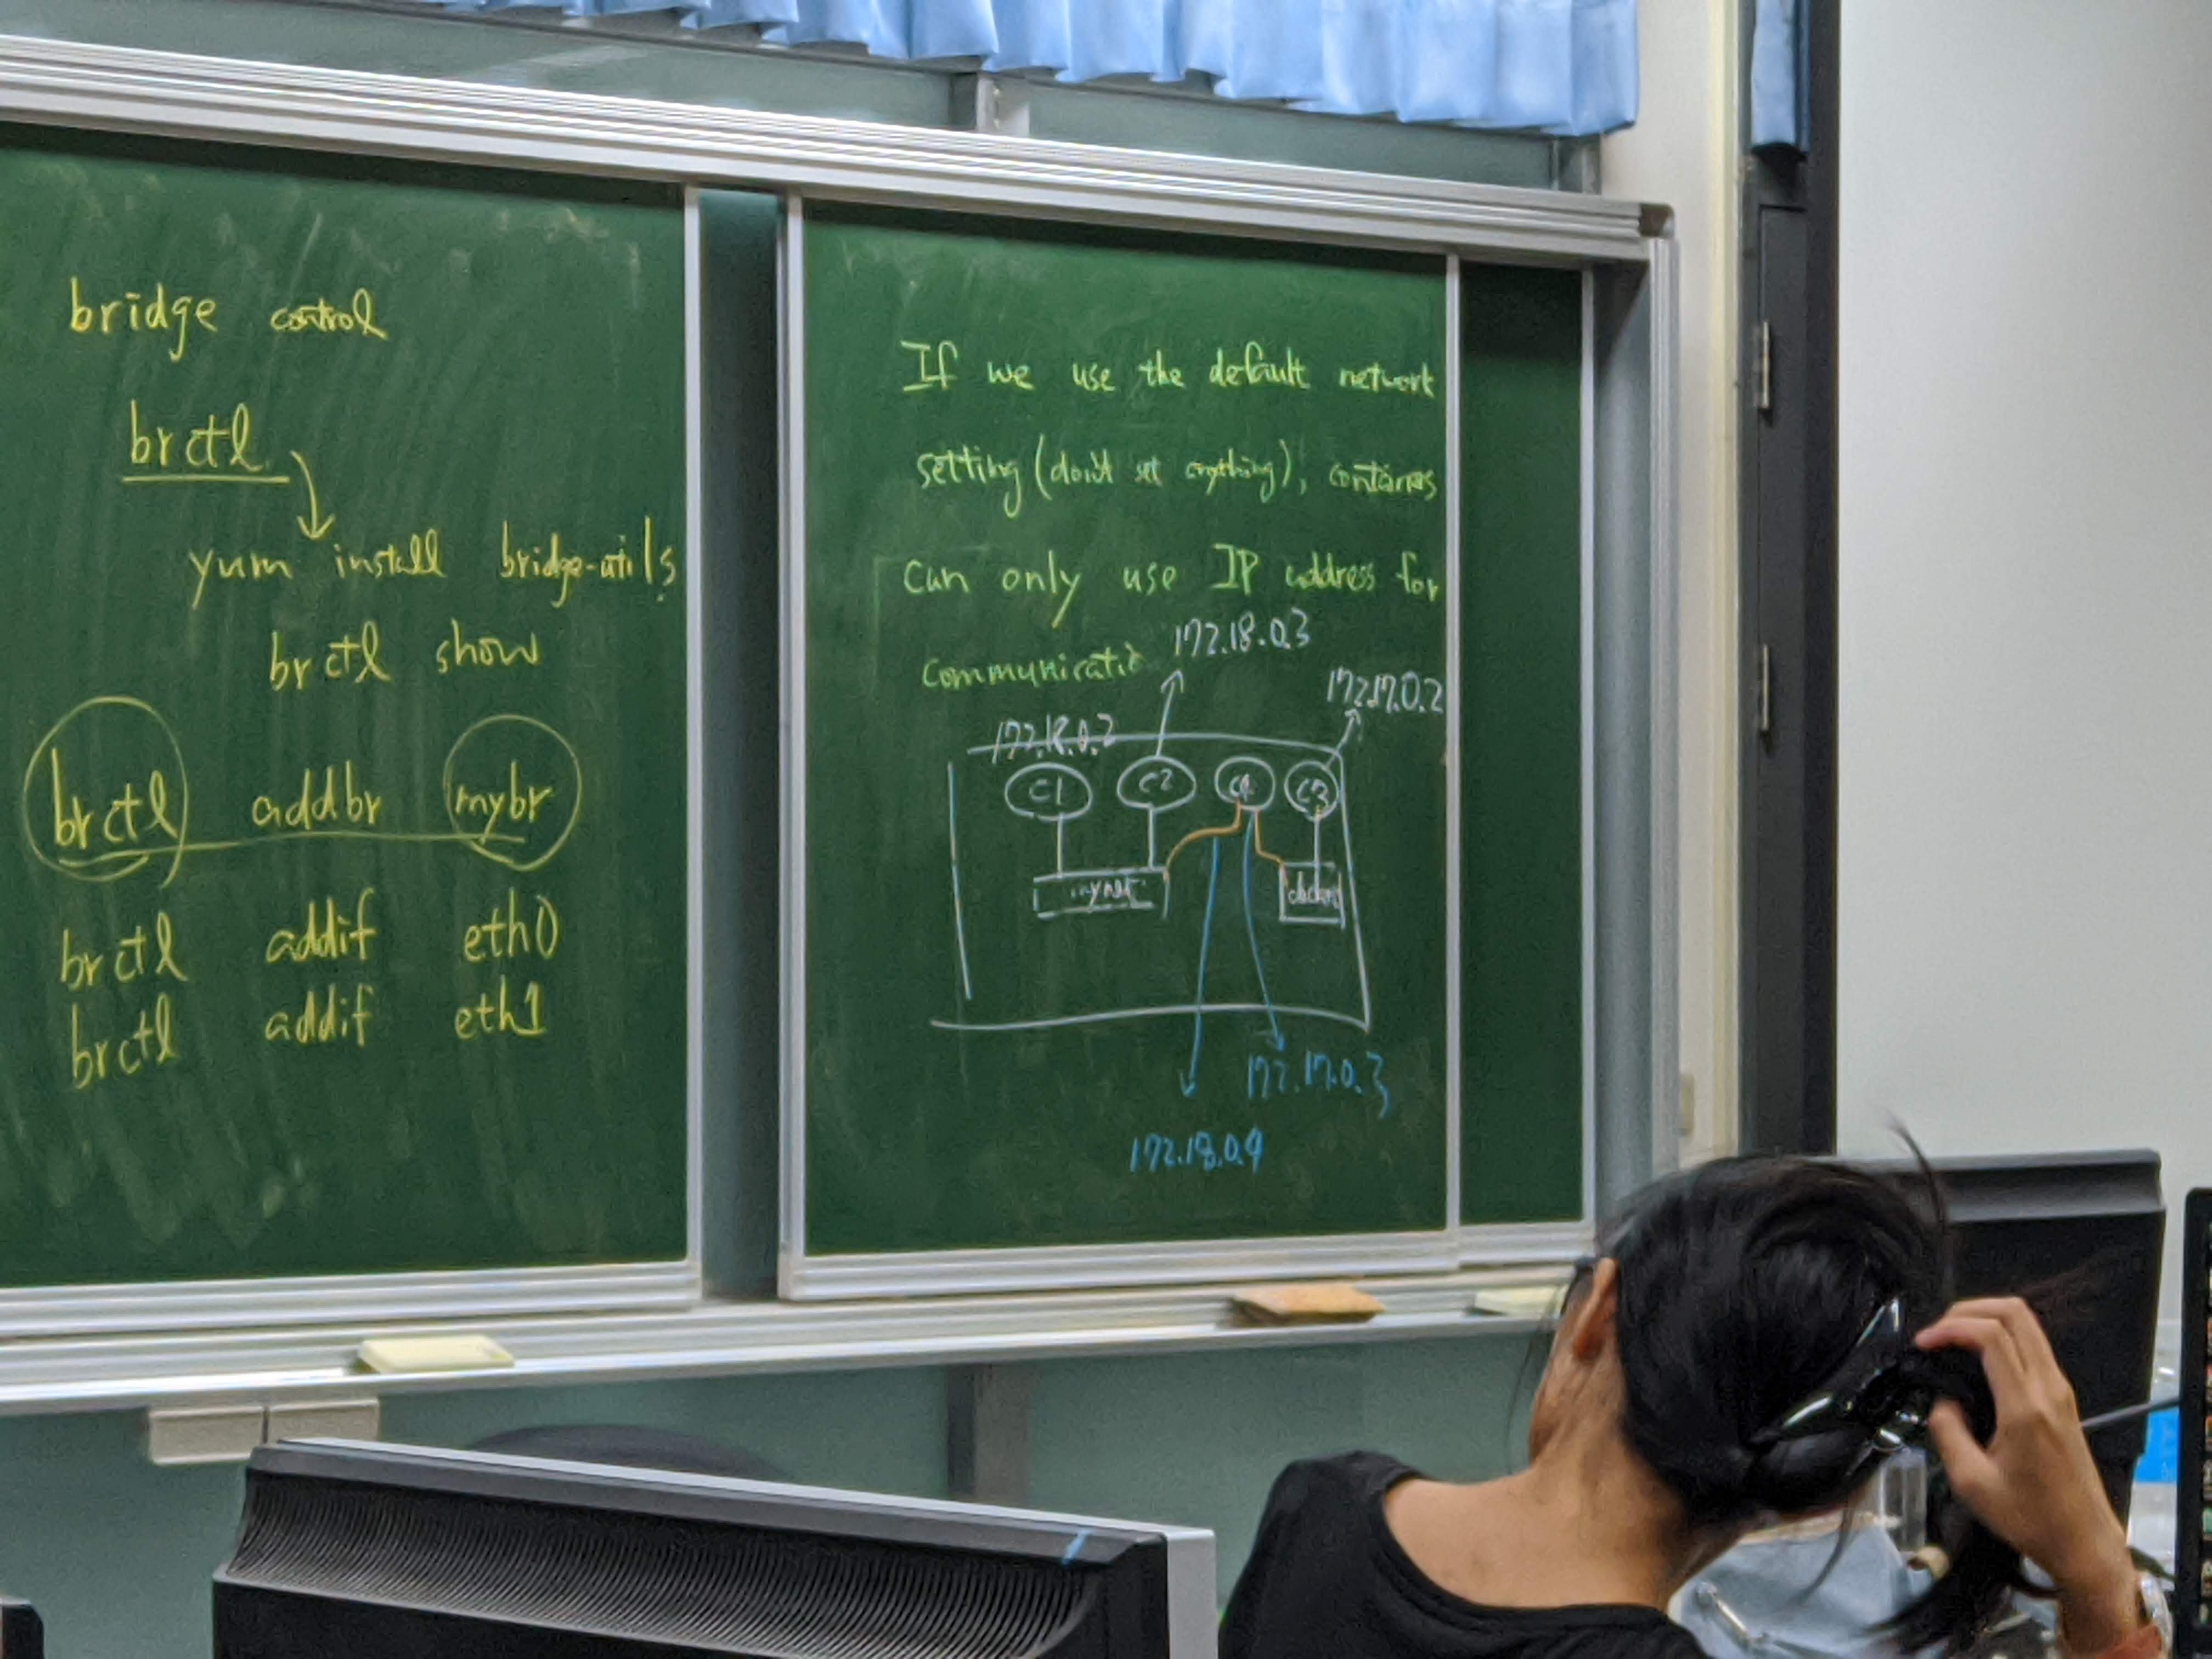 bridge control
brctl
yum install bridge-utils
brctl show
brctl addbr mybr
brctl addif eth0
brctl addif eth1
If we use the default network
setting (don't set anything), containers
can only use IP address for
communicatio
172.18.0.3
172.17.0.2
172.18.0.2
C1 C2 C4 C3
mynet
172.17.0.3
172.18.0.4